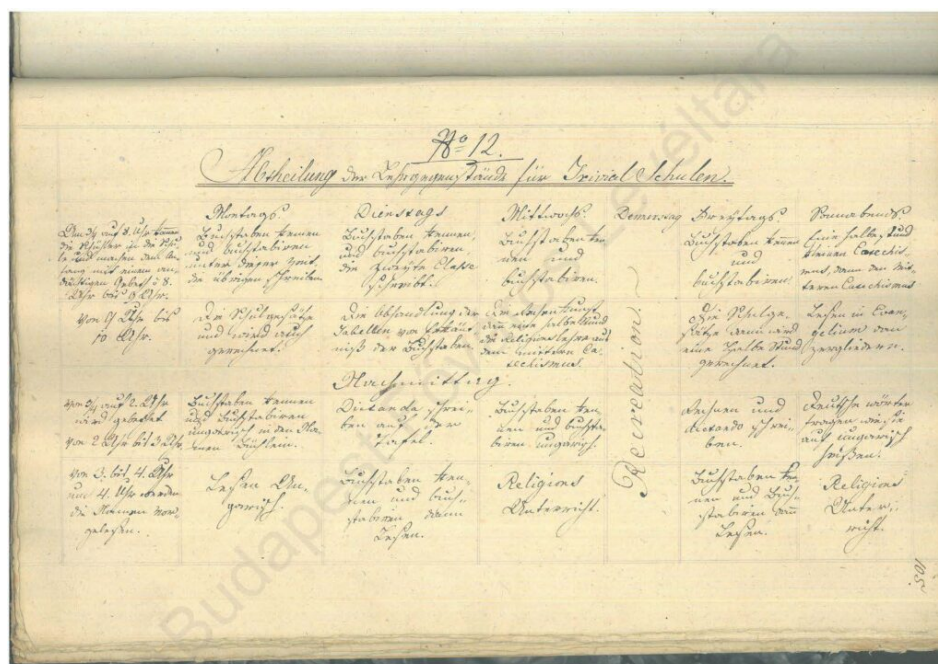 No 12.
Abtheilung der Lehrgegenstände für Trivial Schulen.
Montags. Dienstags Mittwochs. Donnerstag Freytags. Sonnabends.
Um 3/4 auf 8. Uhr kommen
die Schüler in die Schu-
le und machen den An-
fang mit einem an-
dächtigen Gebeth v 8.
Uhr bis 9 Uhr.
Buchstaben kennen
und buchstabiren
unter dieser Zeit
die übrigen schreiben
Buchstaben kennen,
und buchstabiren
die zweyte Classe
schreibt.
Buchstaben ken-
nen und
buchstabiren.
Buchstaben kennen
und
buchstabiren
Eine halbe Stund
kleinen Catechis-
mus, dann den mit-
teren Catechismus
Von 9 Uhr bis
10 Uhr.
Die Schulgesätze
und wird auch
gerechnet.
Die Abhandlung der
Tabellen von Erkänt-
niß der Buchstaben.
eine halbe Stund
die Religionslehre aus
dem mittern Ca-
techismus.
Die Schulge-
sätze dann wird
eine halbe Stund
gerechnet.
Lesen im Evan-
gelium dann
zergliedern.
Recreation.
Nachmittag.
Von 3/4 auf 2. Uhr
wird gebethet
Von 2 Uhr bis 3 Uhr
Buchstaben kennen
und buchstabiren
ungarisch in den Na-
men Büchlein.
Dictando schrei-
ben auf der
Tafel.
Buchstaben ken-
nen und buchsta-
biren ungarisch.
Rechnen und
dictando schrei-
ben.
Deutsche wörter
fragen wie sie
auf ungarisch
heißen.
Von 3. bis 4. Uhr
um 4. Uhr werden
die Namen vor-
gelesen.
Lesen Un-
garisch.
Buchstaben ken-
nen und buch-
stabiren dann
Lesen.
Religions
Unterricht.
Buchstaben ken-
nen und Buch-
stabiren dann
Lesen.
Religions
Unter-
richt.
105
Budapest Főváros Levéltára